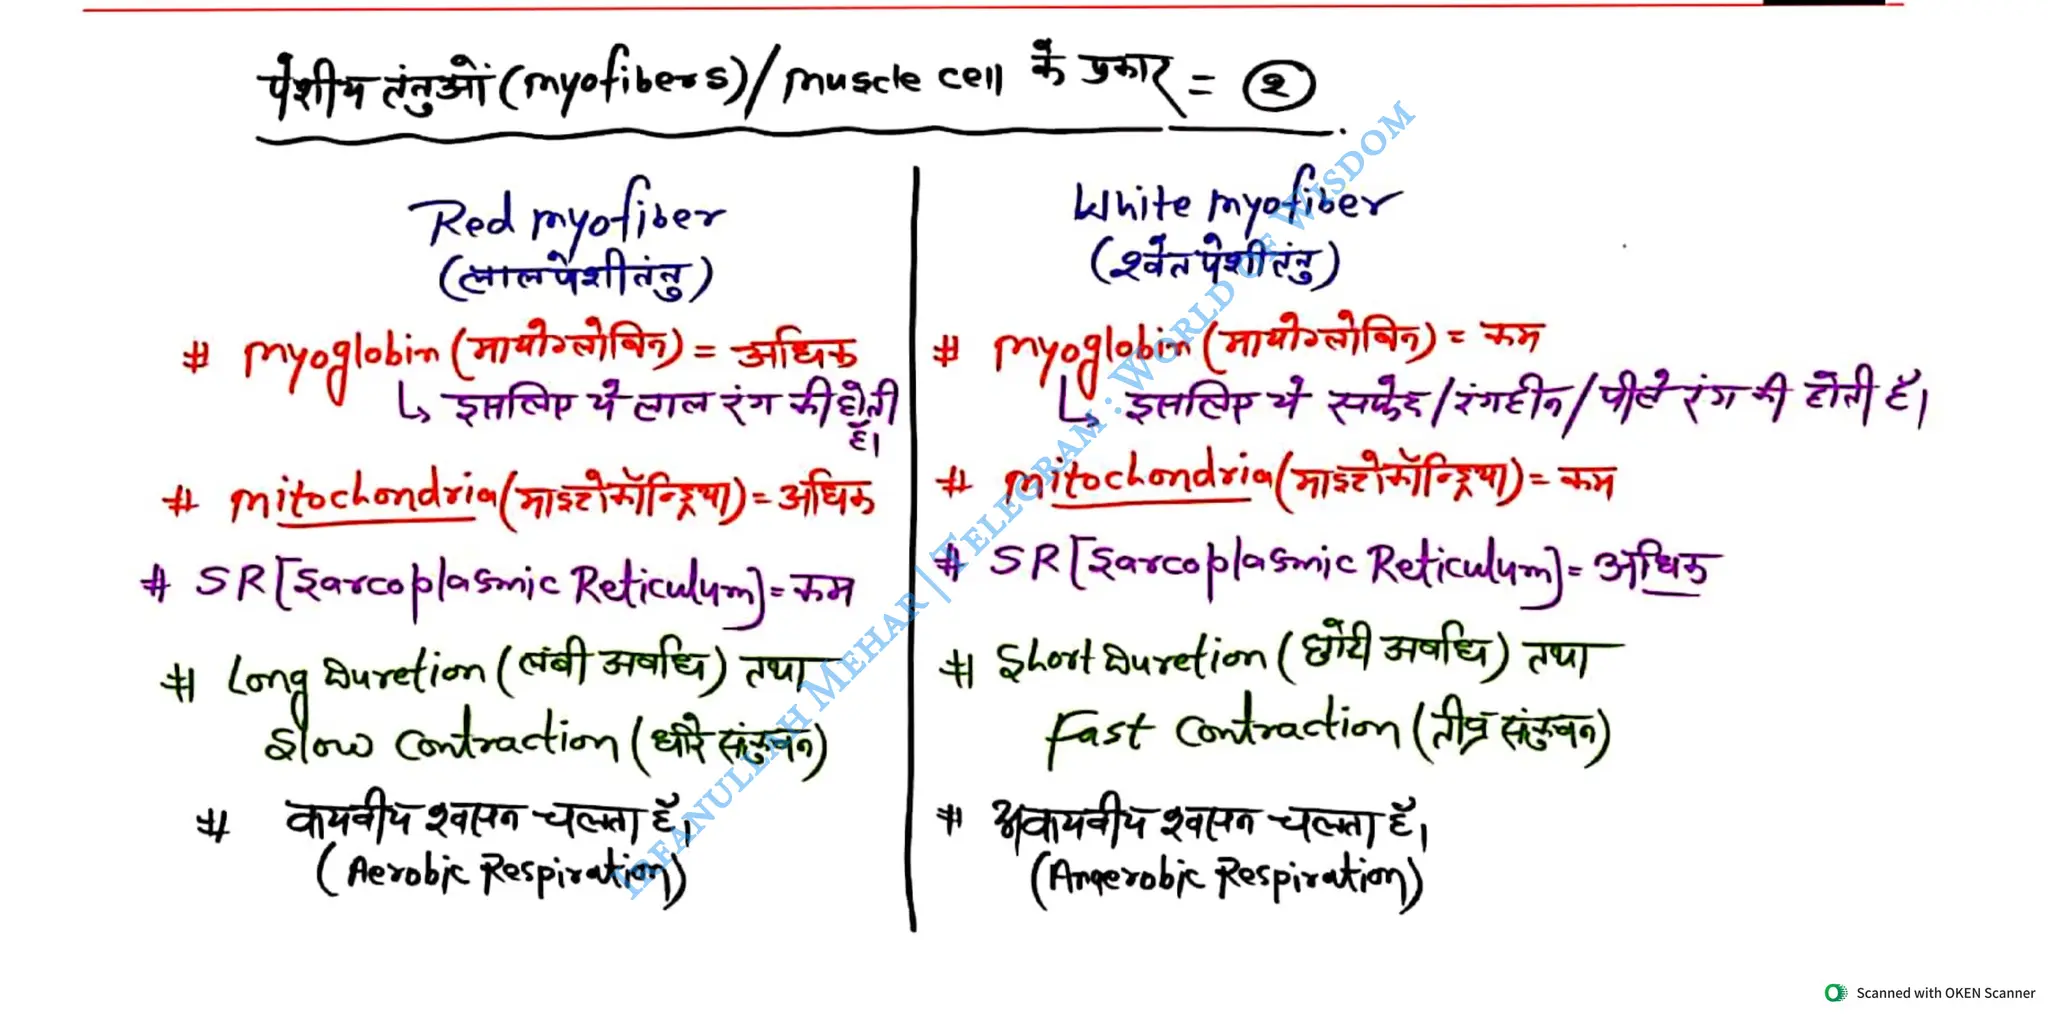 पेशीय तंतुओं (myofibers)/muscle cell के प्रकार = २
Red myofiber
(लाल पेशी तंतु)
# myoglobin (मायोग्लोबिन) = अधिक
↳ इसलिए ये लाल रंग की होती
हैं।
# mitochondria (माइटोकॉन्ड्रिया) = अधिक
# SR [Sarcoplasmic Reticulum] = कम
# Long Duretion (लंबी अवधि) तथा
Slow Contraction (धीरे संकुचन)
# वायवीय श्वसन चलता है।
(Aerobic Respiration)
White myofiber
(श्वेत पेशी तंतु)
# myoglobin (मायोग्लोबिन) = कम
↳ इसलिए ये सफेद/रंगहीन/पीले रंग की होती हैं।
# mitochondria (माइटोकॉन्ड्रिया) = कम
# SR [Sarcoplasmic Reticulum] = अधिक
# Short Duretion (छोटी अवधि) तथा
Fast Contraction (तीव्र संकुचन)
# अवायवीय श्वसन चलता है।
(Anaerobic Respiration)
IRFANULLAH MEHAR | TELEGRAM : WORLD OF WISDOM
Scanned with OKEN Scanner